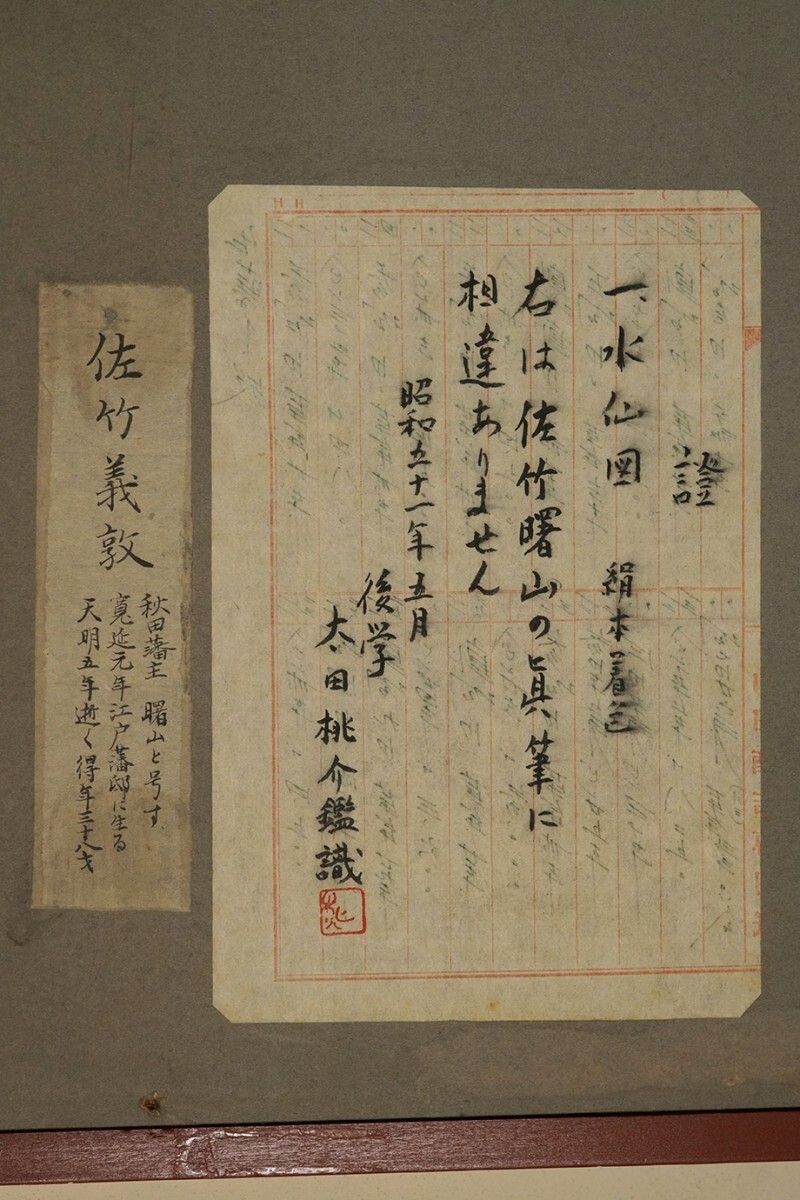 證
一、水仙図　絹本着色
右は佐竹曙山の眞筆に
相違ありません
昭和五十一年五月
後学
太田桃介鑑識
佐竹義敦
秋田藩主　曙山と号す
寛延元年江戸藩邸に生る
天明五年逝く得年三十八才